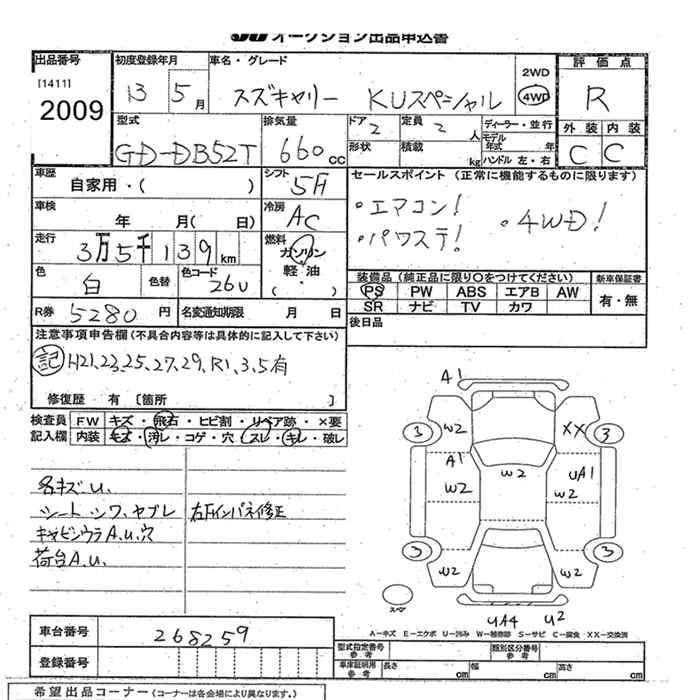 オークション出品申込書
出品番号 [1411] 2009
初度登録年月 13 5月
車名・グレード スズキャリー KUスペシャル
2WD 4WD
評価点 R
型式 GD-DB52T
排気量 660cc
ドア 2
定員 2人
ディーラー・並行
形状
積載 kg
モデル年式 年
ハンドル 左・右
外装 内装
C C
車歴 自家用・( )
シフト 5F
セールスポイント (正常に機能するものに限ります)
・エアコン!
・パワステ!
・4WD!
車検 年 月( 日)
冷房 AC
走行 3万5千139km
燃料 ガソリン 軽油 ( )
色 白 色替
色コード 26U
装備品 (純正品に限り○をつけてください)
新車保証書
PS PW ABS エアB AW
SR ナビ TV カワ
有・無
R券 5280円
名変通知期限 月 日
後日品
注意事項申告欄(不具合内容等は具体的に記入して下さい)
記 H21,23,25,27,29,R1,3,5有
修復歴 有 〔箇所 〕
検査員記入欄
FW キズ・飛石・ヒビ割・リペア跡・×要
内装 キズ・汚レ・コゲ・穴・スレ・キレ・破レ
各キズu.
シートシワ、ヤブレ 右Fインパネ修正
キャビンウラA.u.穴
荷台A.u.
A1
W2 XX
3 3
A1 UA1
W2 W2 W2
3 3
W2 W2
スペア
UA4 U2
A－キズ E－エクボ U－凹み W－補修跡 S－サビ C－腐食 XX－交換済
車台番号 268259
登録番号
型式指定番号 参考
類別区分番号 参考
車庫証明用 参考 長さ cm 幅 cm 高さ cm
希望出品コーナー(コーナーは各会場により異なります。)